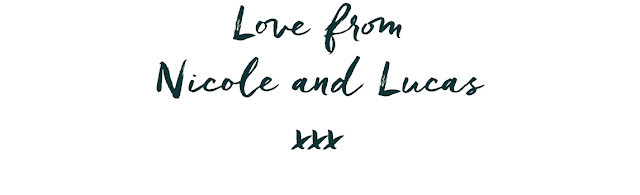 Love from
Nicole and Lucas
xxx